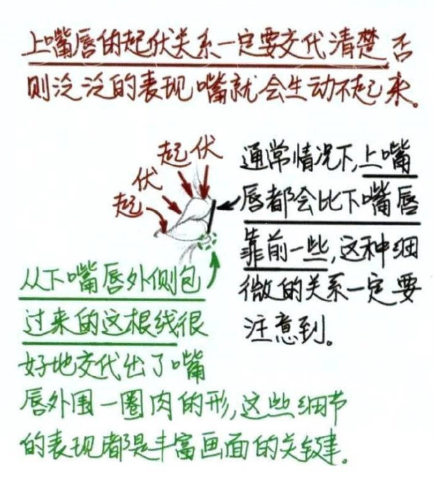 上嘴唇的起伏关系一定要交代清楚否
则泛泛的表现嘴就会生动不起来。
起伏
伏
起
通常情况下,上嘴
唇都会比下嘴唇
靠前一些,这种细
微的关系一定要
注意到。
从下嘴唇外侧包
过来的这根线很
好地交代出了嘴
唇外围一圈肉的形,这些细节
的表现都是丰富画面的关键。